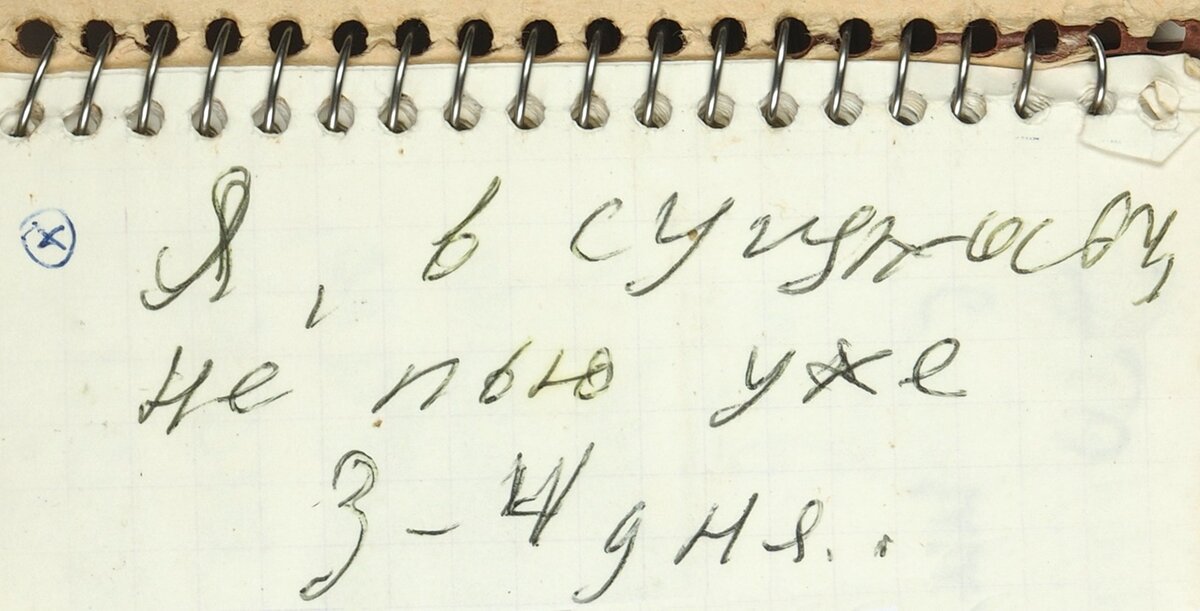 Я, в сущности,
не пью уже
3-4 дня..